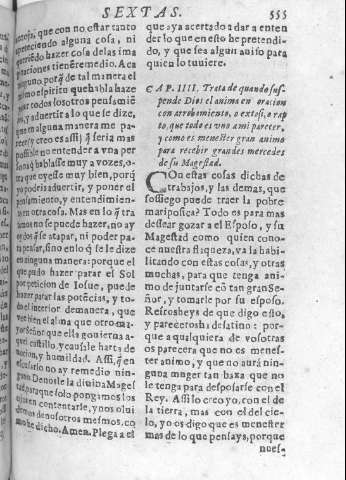 SEXTAS.
555
toja, que con no estar tanto
apeteciendo alguna cosa, ni
queriẽdo hazer cosa delas ima
ginaciones tienẽ remedio. Aca
ninguno, porq̃ de tal manera el
mismo espiritu que habla haze
parar todos losotros pensamiẽ
tos, y aduertir a lo que se dize,
que en alguna manera me pa-
rece (y creo es assi) seria mas
possible no entender a vna per
sona q̃ hablasse muy a vozes, o-
tra que oyesse muy bien, porq̃
podria no aduertir, y poner el
pensamiento, y entendimien-
to en otra cosa. Mas en lo q̃ tra
tamos no se puede hazer, no ay
oydos q̃ se atapar, ni poder pa-
ra pensar, sino en lo q̃ se le dize
en ninguna manera: porque el
que pudo hazer parar el Sol
por peticion de Iosue, puede
hazer parar las potẽcias, y to-
do el interior demanera, que
vee bien el alma que otro ma-
yor Señor que ella gouierna a-
quel castillo, y causale harta de
uocion, y humildad. Assi q̃ en
escusarlo no ay remedio nin-
guno. Denosle la diuina Mages
tad, paraque solo pongamos los
ojos en contentarle, y nos olui
demos de nosotros mesmos, co
mo he dicho, Amen. Plega a el
que aya acertado a dar a enten
der lo que en esto he pretendi-
do, y que sea algun auiso para
quien lo tuuiere.
CAP. IIII. Trata de quando sus-
pende Dios el anima en oracion
con arrobamiento, o extosi, o rap
to, que todo es vno a mi parecer,
y como es menester gran animo
para recebir grandes mercedes
de su Magestad.
COn estas cosas dichas de
trabajos, y las demas, que
sossiego puede traer la pobre
mariposica? Todo es para mas
dessear gozar a el Esposo, y su
Magestad como quien cono-
ce nuestra flaqueza, va la habi-
litando con estas cosas, y otras
muchas, para que tenga ani-
mo de juntarse cõ tan gran Se-
ñor, y tomarle por su esposo.
Reyros heys de que digo esto,
y pareceros ha desatino: por-
que a qualquiera de vosotras
os parecera que no es menes-
ter animo, y que no aurà nin-
guna muger tan baxa que no
le tenga para desposarse con el
Rey. Assi lo creo yo, con el de
la tierra, mas con el del cie-
lo, yo os digo que es menester
mas de lo que pensays, porque
nues-